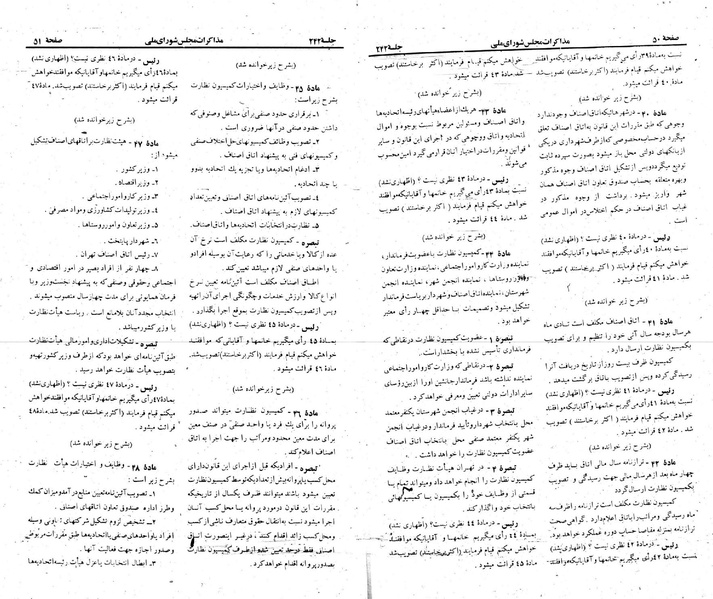 صفحهٔ ۵۰
مذاکرات مجلس شورای ملی
جلسهٔ ۲۲۲
نسبت بماده ۳۹ رأی میگیریم خانمها و آقایانیکه موافقند
خواهش میکنم قیام فرمایند (اکثر برخاستند) تصویب شد.
ماده ۴۰ قرائت میشود .
(بشرح زیر خوانده شد)
مادهٔ ۴۰- در شهرهائیکه اتاق اصناف وجود ندارد
وجوهی که طبق مقررات این قانون به اتاق اصناف تعلق
میگیرد در حساب مخصوصی که از طرف شهرداری در یکی
از بانکهای دولتی محل باز میشود بصورت سپرده ثابت
تودیع میگردد و پس از تشکیل اتاق اصناف وجوه مذکور
و بهره متعلقه بحساب صندوق تعاون اتاق اصناف همان
شهر واریز میشود . برداشت از وجوه مذکور در
غیاب اتاق اصناف در حکم اختلاس در اموال عمومی
است .
رئیس - در ماده ۴۰ نظری نیست ؟ (اظهاری نشد)
نسبت بماده ۴۰ رأی میگیریم خانمها و آقایانیکه موافقند
خواهش میکنم قیام فرمایند (اکثر برخاستند) تصویب شد .
ماده ۴۱ قرائت میشود .
(بشرح زیر خوانده شد)
مادهٔ ۴۱ - اتاق اصناف مکلف است تا دی ماه
هر سال بودجه سال آتی خود را تنظیم و برای تصویب
بکمیسیون نظارت ارسال دارد .
کمیسیون ظرف بیست روز از تاریخ دریافت آنرا
رسیدگی کرده و پس از تصویب باتاق برگشت میدهد .
رئیس - در ماده ۴۱ نظری نیست ؟ (اظهاری نشد)
نسبت بماده ۴۱ رأی میگیریم خانمها و آقایانیکه موافقند
خواهش میکنم قیام فرمایند (اکثر برخاستند) تصویب شد .
ماده ۴۲ قرائت میشود .
(بشرح زیر خوانده شد)
مادهٔ ۴۲ - ترازنامه سال مالی اتاق باید ظرف
چهار ماه بعد از هر سال مالی جهت رسیدگی و تصویب
بکمیسیون نظارت ارسال گردد
کمیسیون نظارت مکلف است ترازنامه را ظرف سه
ماه رسیدگی و مراتب را باتاق اعلام دارد . گواهی صحت
ترازنامه بمنزله مفاصا حساب دوره عملکرد خواهد بود .
رئیس - در ماده ۴۲ نظری نیست ؟ (اظهاری نشد)
نسبت بماده ۴۲ رأی میگیریم خانمها و آقایانیکه موافقند
خواهش میکنم قیام فرمایند (اکثر برخاستند) تصویب
شد. ماده ۴۳ قرائت میشود .
(بشرح زیر خوانده شد)
مادهٔ ۴۳- هر یک از اعضاء هیأتهای رئیسه اتحادیه‌ها
و اتاق اصناف و مسئولین مربوط نسبت بوجوه و اموال
اتحادیه و اتاق و وجوهی که در اجرای این قانون و سایر
قوانین و مقررات در اختیار آنان قرار میگیرد امین محسوب
می‌شوند .
رئیس - در ماده ۴۳ نظری نیست؟ (اظهاری نشد)
نسبت بماده ۴۳ رأی میگیریم خانمها و آقایانیکه موافقند
خواهش میکنم قیام فرمایند (اکثر برخاستند) تصویب
شد . ماده ۴۴ قرائت میشود .
(بشرح زیر خوانده شد)
مادهٔ ۴۴ - کمیسیون نظارت با عضویت فرماندار،
نماینده وزارت کار و امور اجتماعی، نماینده وزارت تعاون
و امور روستاها، نماینده انجمن شهر، نماینده انجمن
شهرستان، نماینده اتاق اصناف و شهردار بریاست فرماندار
تشکیل میشود و تصمیمات با حداقل چهار رأی معتبر
خواهد بود .
تبصره ۱ - عضویت کمیسیون نظارت در نقاطی که
فرمانداری تأسیس نشده با بخشدار است .
تبصره ۲- در نقاطی که وزارت کار و امور اجتماعی
نماینده نداشته باشد فرماندار جانشین او را از بین رؤسای
سایر ادارات دولتی تعیین و معرفی خواهد کرد .
تبصره ۳ - در غیاب انجمن شهرستان یکنفر معتمد
محل بانتخاب شهردار و تأیید فرماندار و در غیاب انجمن
شهر یکنفر معتمد صنفی محل بانتخاب اتاق اصناف
عضویت کمیسیون نظارت را خواهد داشت .
تبصره ۴ - در تهران هیأت نظارت وظایف
کمیسیون نظارت را انجام خواهد داد و میتواند تمام یا
قسمتی از وظایف خود را بکمیسیون یا کمیسیونهائی
بانتخاب خود واگذار کند .
رئیس - در ماده ۴۴ نظری نیست؟ (اظهاری نشد)
نسبت بماده ۴۴ رأی میگیریم خانمها و آقایانیکه موافقند
خواهش میکنم قیام فرمایند (اکثر برخاستند) تصویب شد.
ماده ۴۵ قرائت میشود .
جلسهٔ ۲۲۲
مذاکرات مجلس شورای ملی
صفحهٔ ۵۱
(بشرح زیر خوانده شد)
مادهٔ ۴۵ - وظایف و اختیارات کمیسیون نظارت
بشرح زیر است:
۱- برقراری حدود صنفی برای مشاغل و صنوفی که
داشتن حدود صنفی در آنها ضروری است .
۲- تصویب وظائف کمیسیونهای حل اختلاف صنفی
و کمیسیونهای فنی به پیشنهاد اتاق اصناف .
۳- ادغام اتحادیه‌ها و یا تجزیه یک اتحادیه بدو
یا چند اتحادیه .
۴- تصویب آئین‌نامه‌های اتاق اصناف و تعیین تعداد
کمیسیونهای لازم به پیشنهاد اتاق اصناف .
۵- نظارت در انتخابات اتحادیه‌ها و اتاق اصناف.
تبصره - کمیسیون نظارت مکلف است نرخ آن
عده از کالا و یا خدماتی را که عرضه آن بوسیله افراد
یا واحدهای صنفی لازم میباشد تعیین کند.
اطاق اصناف مکلف است آئین‌نامه تعیین نرخ
انواع کالا و ارزش خدمات و چگونگی اجرای آن را تهیه
و پس از تصویب کمیسیون نظارت بموقع اجرا بگذارد .
رئیس - در ماده ۴۵ نظری نیست؟ (اظهاری نشد)
بماده ۴۵ رأی میگیریم خانمها و آقایانیکه موافقند
خواهش میکنم قیام فرمایند (اکثر برخاستند) تصویب شد.
ماده ۴۶ قرائت میشود .
(بشرح زیر خوانده شد)
مادهٔ ۴۶ - کمیسیون نظارت میتواند صدور
پروانه را برای یک فرد یا واحد صنفی در صنف معین
برای مدت معین محدود و مراتب را جهت اجرا به اتاق
اصناف اعلام کند .
تبصره - افرادیکه قبل از اجرای این قانون دارای
محل کسب یا پروانه بیش از تعدادیکه توسط کمیسیون نظارت
تعیین میشود باشند میتوانند ظرف یکسال از تاریخیکه
مقررات این قانون در مورد پروانه یا محل کسب آنان
اجرا میشود نسبت به انتقال حقوق متعارف ناشی از کسب
و محل کسب زائد اقدام کنند ، در غیر اینصورت اتاق
اصناف فقط در حد تعیین شده از طرف کمیسیون نظارت
بصدور پروانه اقدام خواهد کرد.
رئیس - در ماده ۴۶ نظری نیست؟ (اظهاری نشد)
بماده ۴۶ رأی میگیریم خانمها و آقایانیکه موافقند خواهش
میکنم قیام فرمایند (اکثر برخاستند) تصویب شد. ماده ۴۷
قرائت میشود .
(بشرح زیر خوانده شد)
مادهٔ ۴۷ - هیئت نظارت بر اتاقهای اصناف تشکیل
میشود از:
۱- وزیر کشور .
۲- وزیر اقتصاد .
۳- وزیر کار و امور اجتماعی .
۴- وزیر تولیدات کشاورزی و مواد مصرفی .
۵- وزیر تعاون و امور روستاها .
۶- شهردار پایتخت .
۷- رئیس اتاق اصناف تهران .
۸- چهار نفر از افراد بصیر در امور اقتصادی و
اجتماعی و حقوقی و صنفی که به پیشنهاد نخست‌وزیر و با
فرمان همایونی برای مدت چهار سال منصوب میشوند .
انتخاب مجدد آنان بلامانع است . ریاست هیأت نظارت
با وزیر کشور میباشد .
تبصره - تشکیلات اداری و امور مالی هیأت نظارت
طبق آئین‌نامه‌ای خواهد بود که از طرف وزیر کشور تهیه و
بتصویب هیأت نظارت خواهد رسید .
رئیس - در ماده ۴۷ نظری نیست؟ (اظهاری نشد)
بماده ۴۷ رأی میگیریم خانمها و آقایانیکه موافقند خواهش
میکنم قیام فرمایند (اکثر برخاستند) تصویب شد. ماده ۴۸
قرائت میشود .
(بشرح زیر خوانده شد)
مادهٔ ۴۸ - وظایف و اختیارات هیأت نظارت
بشرح زیر است :
۱- تصویب آئین‌نامه تعیین منابع درآمد و میزان کمک
و طرز اداره صندوق تعاون اتاقهای اصناف .
۲- تشخیص لزوم تشکیل شرکتهای تعاونی وسیله
افراد یا واحدهای صنفی یا اتحادیه‌ها طبق مقررات مربوط
و صدور اجازه جهت فعالیت آنها .
۳- ابطال انتخابات یا عزل هیأت رئیسه اتحادیه‌ها